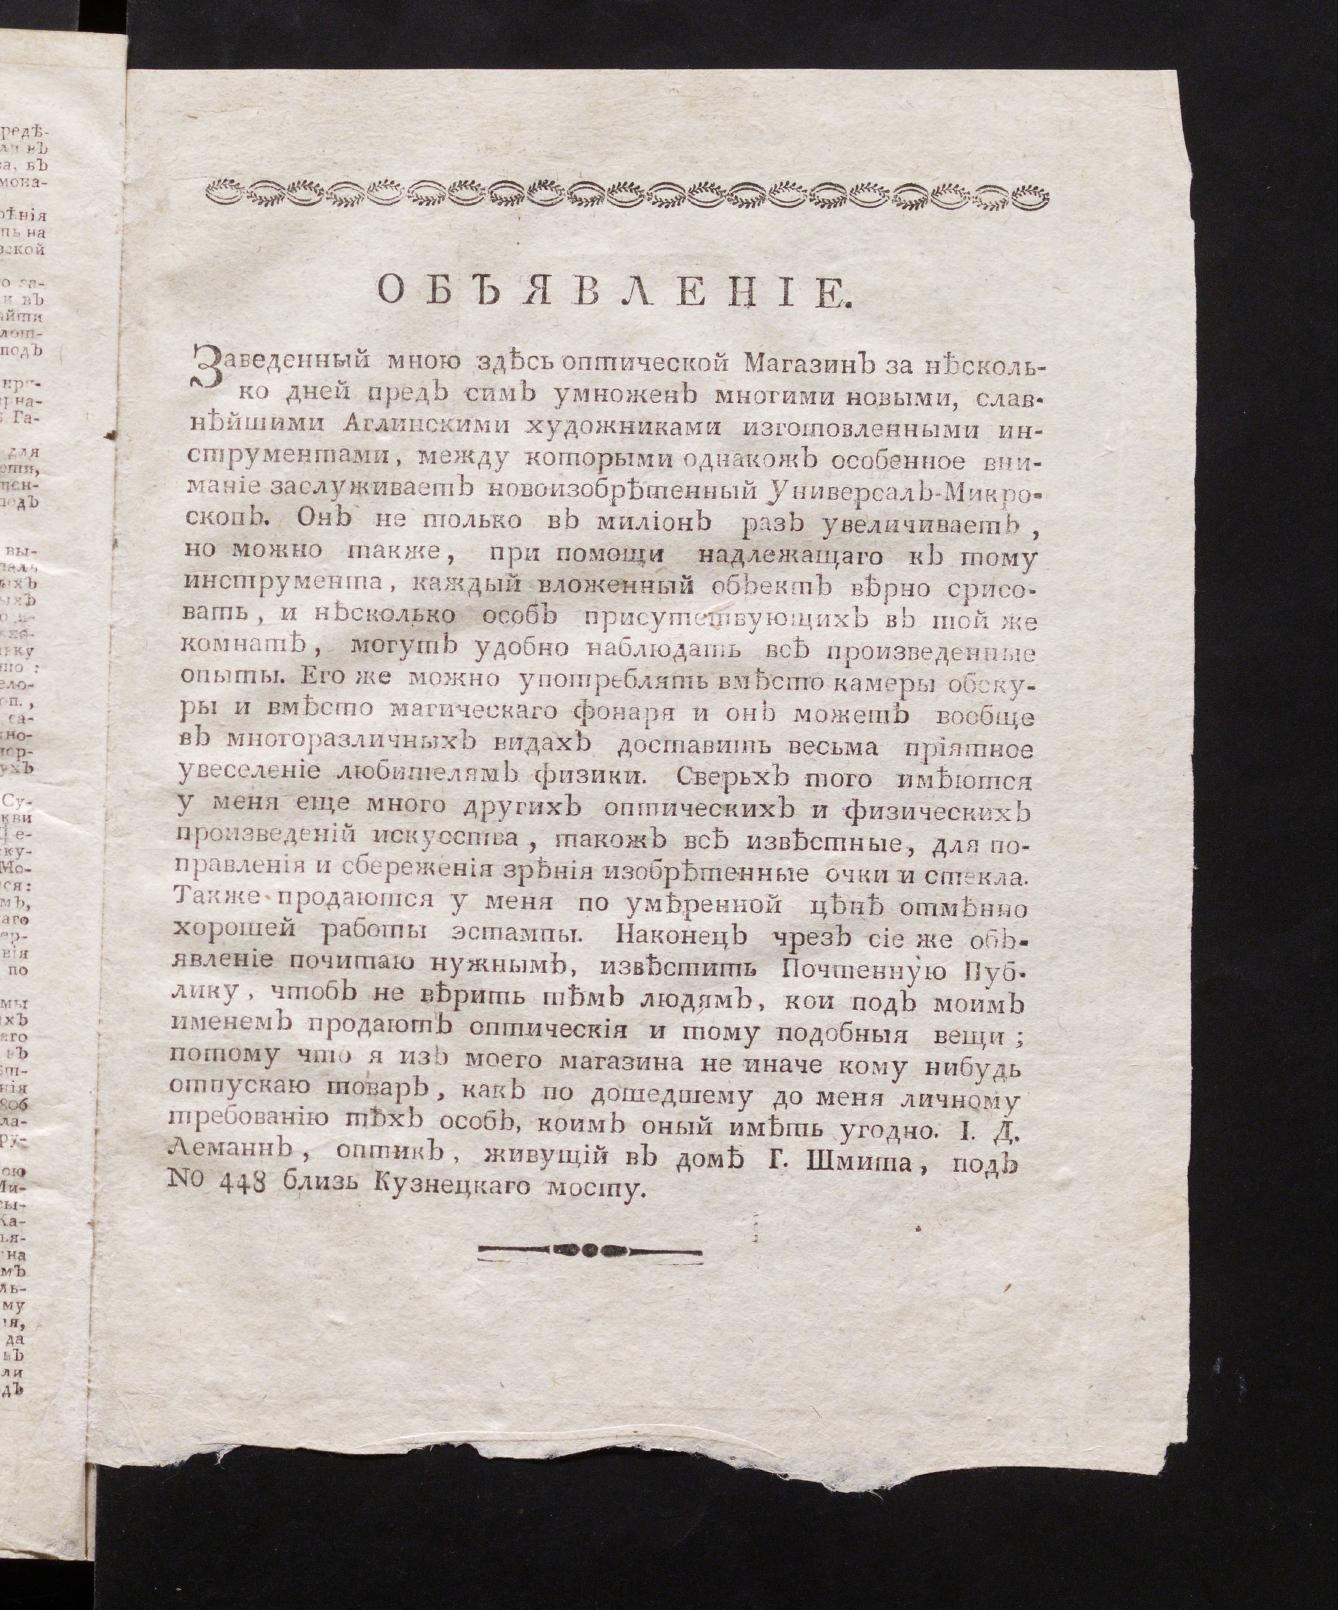 ОБЪЯВЛЕНІЕ.
Заведенный мною здѣсь оптической Магазинъ за нѣсколь-
ко дней предъ симъ умноженъ многими новыми, слав-
нѣйшими Аглинскими художниками изготовленными ин-
струментами, между которыми однакожъ особенное вни-
маніе заслуживаетъ новоизобрѣтенный Универсалъ-Микро-
скопъ. Онъ не только въ миліонъ разъ увеличиваетъ,
но можно также, при помощи надлежащаго къ тому
инструмента, каждый вложенный объектъ вѣрно срисо-
вать, и нѣсколько особъ присутствующихъ въ той же
комнатѣ, могутъ удобно наблюдать всѣ произведенные
опыты. Его же можно употреблять вмѣсто камеры обску-
ры и вмѣсто магическаго фонаря и онъ можетъ вообще
въ многоразличныхъ видахъ доставить весьма пріятное
увеселеніе любителямъ физики. Сверьхъ того имѣются
у меня еще много другихъ оптическихъ и физическихъ
произведеній искусства, такожъ всѣ извѣстные, для по-
правленія и сбереженія зрѣнія изобрѣтенные очки и стекла.
Также продаются у меня по умѣренной цѣнѣ отмѣнно
хорошей работы эстампы. Наконецъ чрезъ сіе же объ-
явленіе почитаю нужнымъ, извѣстить Почтенную Пуб-
лику, чтобъ не вѣрить тѣмъ людямъ, кои подъ моимъ
именемъ продаютъ оптическія и тому подобныя вещи;
потому что я изъ моего магазина не иначе кому нибудь
отпускаю товаръ, какъ по дошедшему до меня личному
требованію тѣхъ особъ, коимъ оный имѣть угодно. І. Д.
Леманнъ, оптикъ, живущій въ домѣ Г. Шмита, подъ
No 448 близь Кузнецкаго мосту.